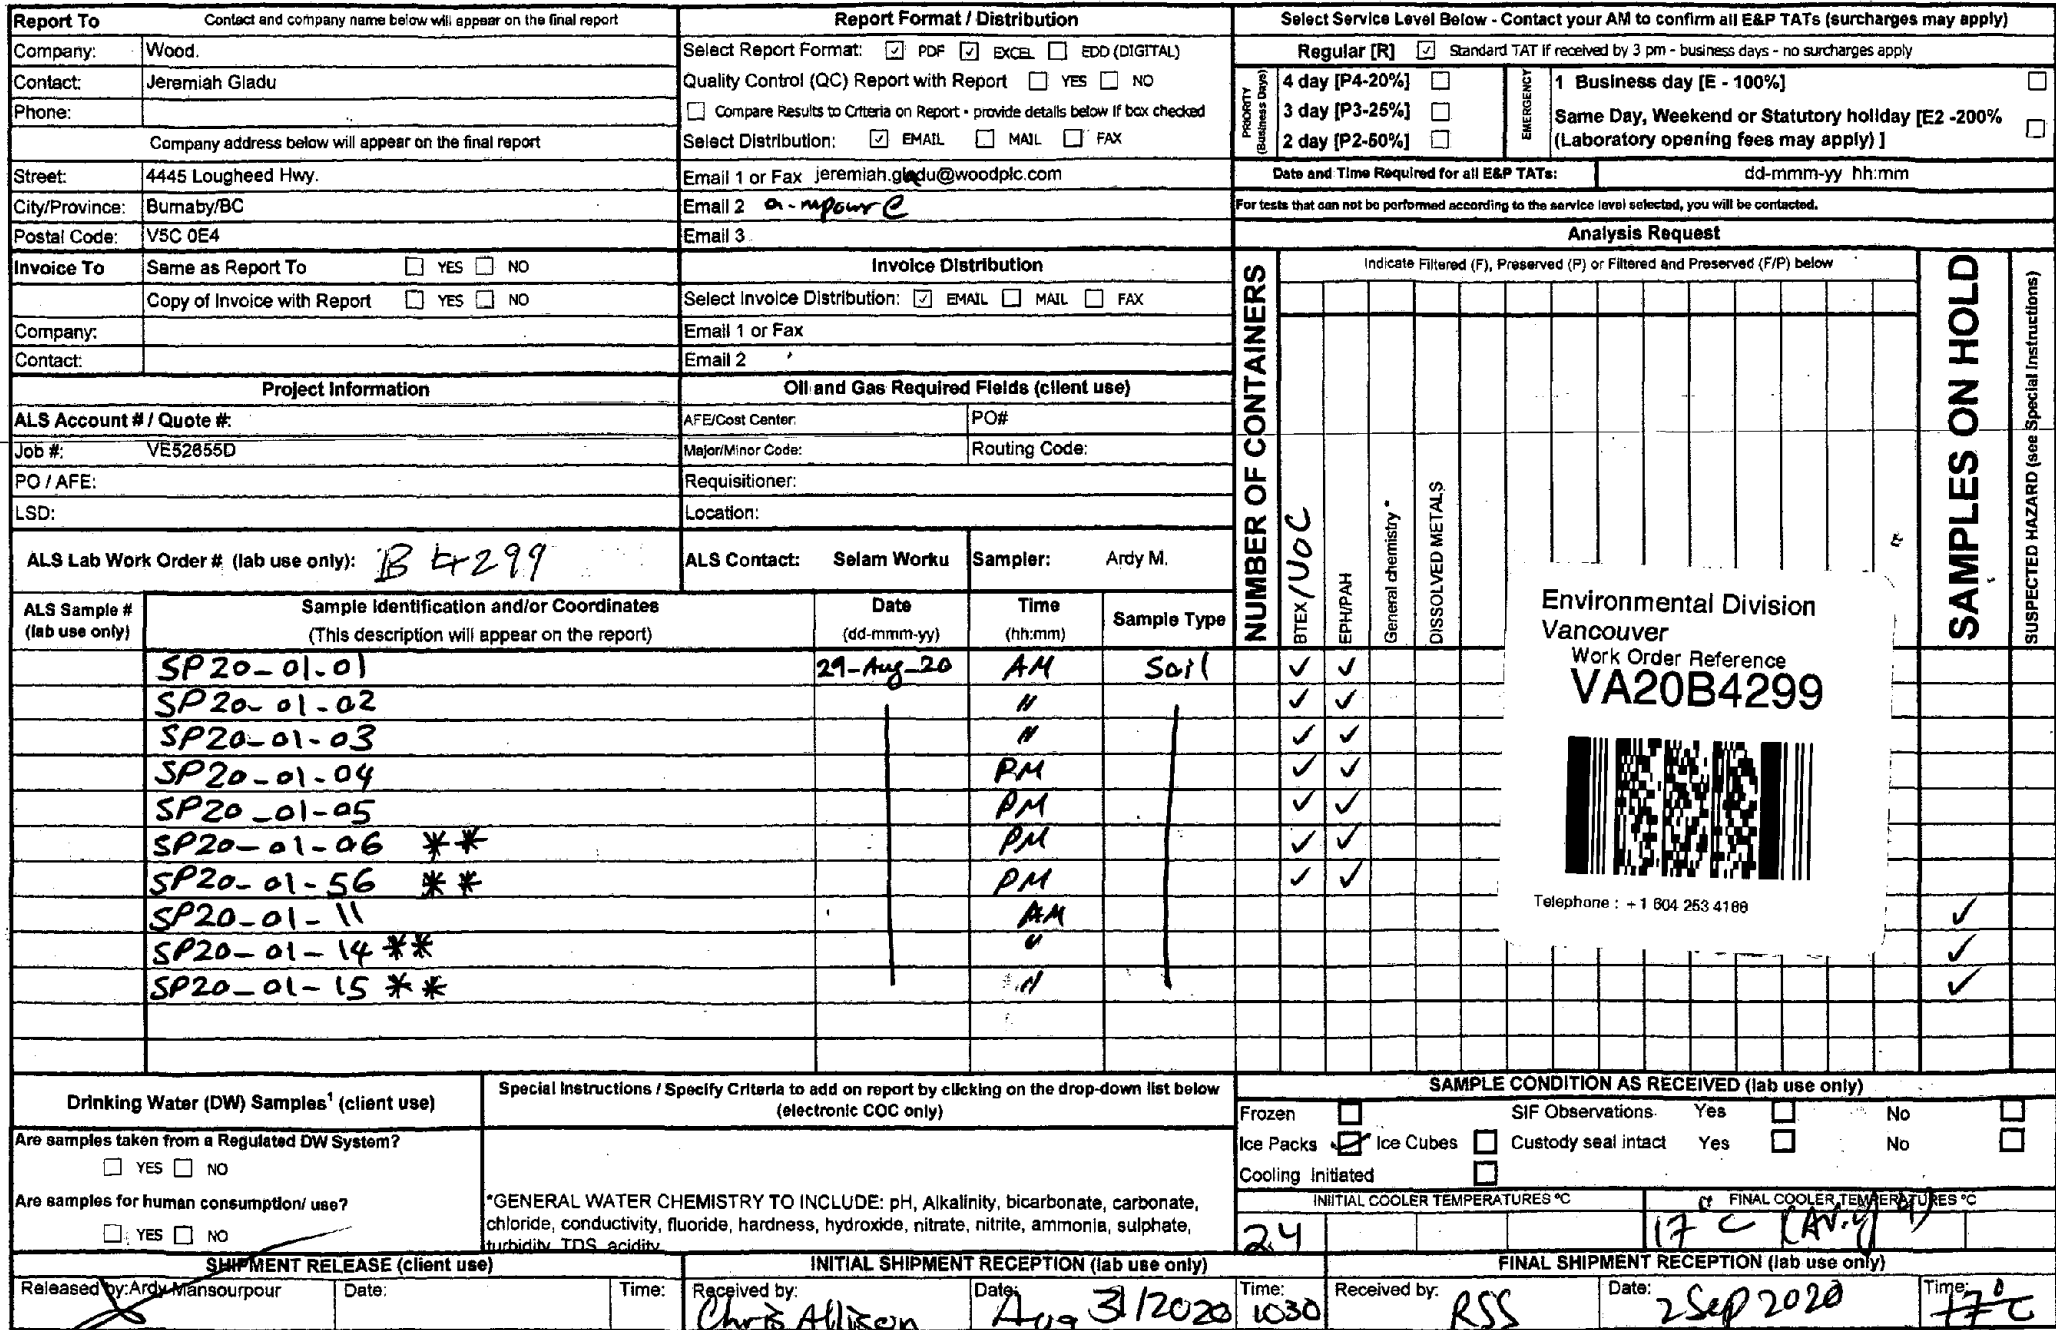 Report To Contact and company name below will appear on the final report
Company: Wood.
Contact: Jeremiah Gladu
Phone:
Company address below will appear on the final report
Street: 4445 Lougheed Hwy.
City/Province: Burnaby/BC
Postal Code: V5C 0E4
Invoice To Same as Report To YES NO
Copy of Invoice with Report YES NO
Company:
Contact:
Project Information
ALS Account # / Quote #:
Job #: VE52655D
PO / AFE:
LSD:
ALS Lab Work Order # (lab use only): B4299
Report Format / Distribution
Select Report Format: PDF EXCEL EDD (DIGITAL)
Quality Control (QC) Report with Report YES NO
Compare Results to Criteria on Report - provide details below if box checked
Select Distribution: EMAIL MAIL FAX
Email 1 or Fax jeremiah.gladu@woodplc.com
Email 2
Email 3
Invoice Distribution
Select Invoice Distribution: EMAIL MAIL FAX
Email 1 or Fax
Email 2
Oil and Gas Required Fields (client use)
AFE/Cost Center: PO#
Major/Minor Code: Routing Code:
Requisitioner:
Location:
ALS Contact: Selam Worku Sampler: Ardy M.
Select Service Level Below - Contact your AM to confirm all E&P TATs (surcharges may apply)
Regular [R] Standard TAT if received by 3 pm - business days - no surcharges apply
PRIORITY (Business Days)
4 day [P4-20%]
3 day [P3-25%]
2 day [P2-50%]
EMERGENCY
1 Business day [E - 100%]
Same Day, Weekend or Statutory holiday [E2 -200%
(Laboratory opening fees may apply) ]
Date and Time Required for all E&P TATs: dd-mmm-yy hh:mm
For tests that can not be performed according to the service level selected, you will be contacted.
Analysis Request
Indicate Filtered (F), Preserved (P) or Filtered and Preserved (F/P) below
NUMBER OF CONTAINERS
BTEX/VOC
EPH/PAH
General chemistry *
DISSOLVED METALS
SAMPLES ON HOLD
SUSPECTED HAZARD (see Special Instructions)
Environmental Division
Vancouver
Work Order Reference
VA20B4299
Telephone : +1 604 253 4188
ALS Sample # (lab use only) Sample Identification and/or Coordinates (This description will appear on the report) Date (dd-mmm-yy) Time (hh:mm) Sample Type
SP20-01-01 29-Aug-20 AM Soil ✓ ✓
SP20-01-02 " ✓ ✓
SP20-01-03 " ✓ ✓
SP20-01-04 PM ✓ ✓
SP20-01-05 PM ✓ ✓
SP20-01-06 ** PM ✓ ✓
SP20-01-56 ** PM ✓ ✓
SP20-01-11 AM ✓
SP20-01-14 ** " ✓
SP20-01-15 ** " ✓
Drinking Water (DW) Samples¹ (client use)
Are samples taken from a Regulated DW System?
YES NO
Are samples for human consumption/ use?
YES NO
Special Instructions / Specify Criteria to add on report by clicking on the drop-down list below
(electronic COC only)
*GENERAL WATER CHEMISTRY TO INCLUDE: pH, Alkalinity, bicarbonate, carbonate,
chloride, conductivity, fluoride, hardness, hydroxide, nitrate, nitrite, ammonia, sulphate,
turbidity, TDS, acidity
SAMPLE CONDITION AS RECEIVED (lab use only)
Frozen SIF Observations Yes No
Ice Packs Ice Cubes Custody seal intact Yes No
Cooling Initiated
INITIAL COOLER TEMPERATURES °C FINAL COOLER TEMPERATURES °C
24 17°C
SHIPMENT RELEASE (client use)
Released by: Ardy Mansourpour Date: Time:
INITIAL SHIPMENT RECEPTION (lab use only)
Received by: Chris Allison Date: Aug 31/2020 Time: 1030
FINAL SHIPMENT RECEPTION (lab use only)
Received by: RSS Date: 2 Sep 2020 Time: 17°C